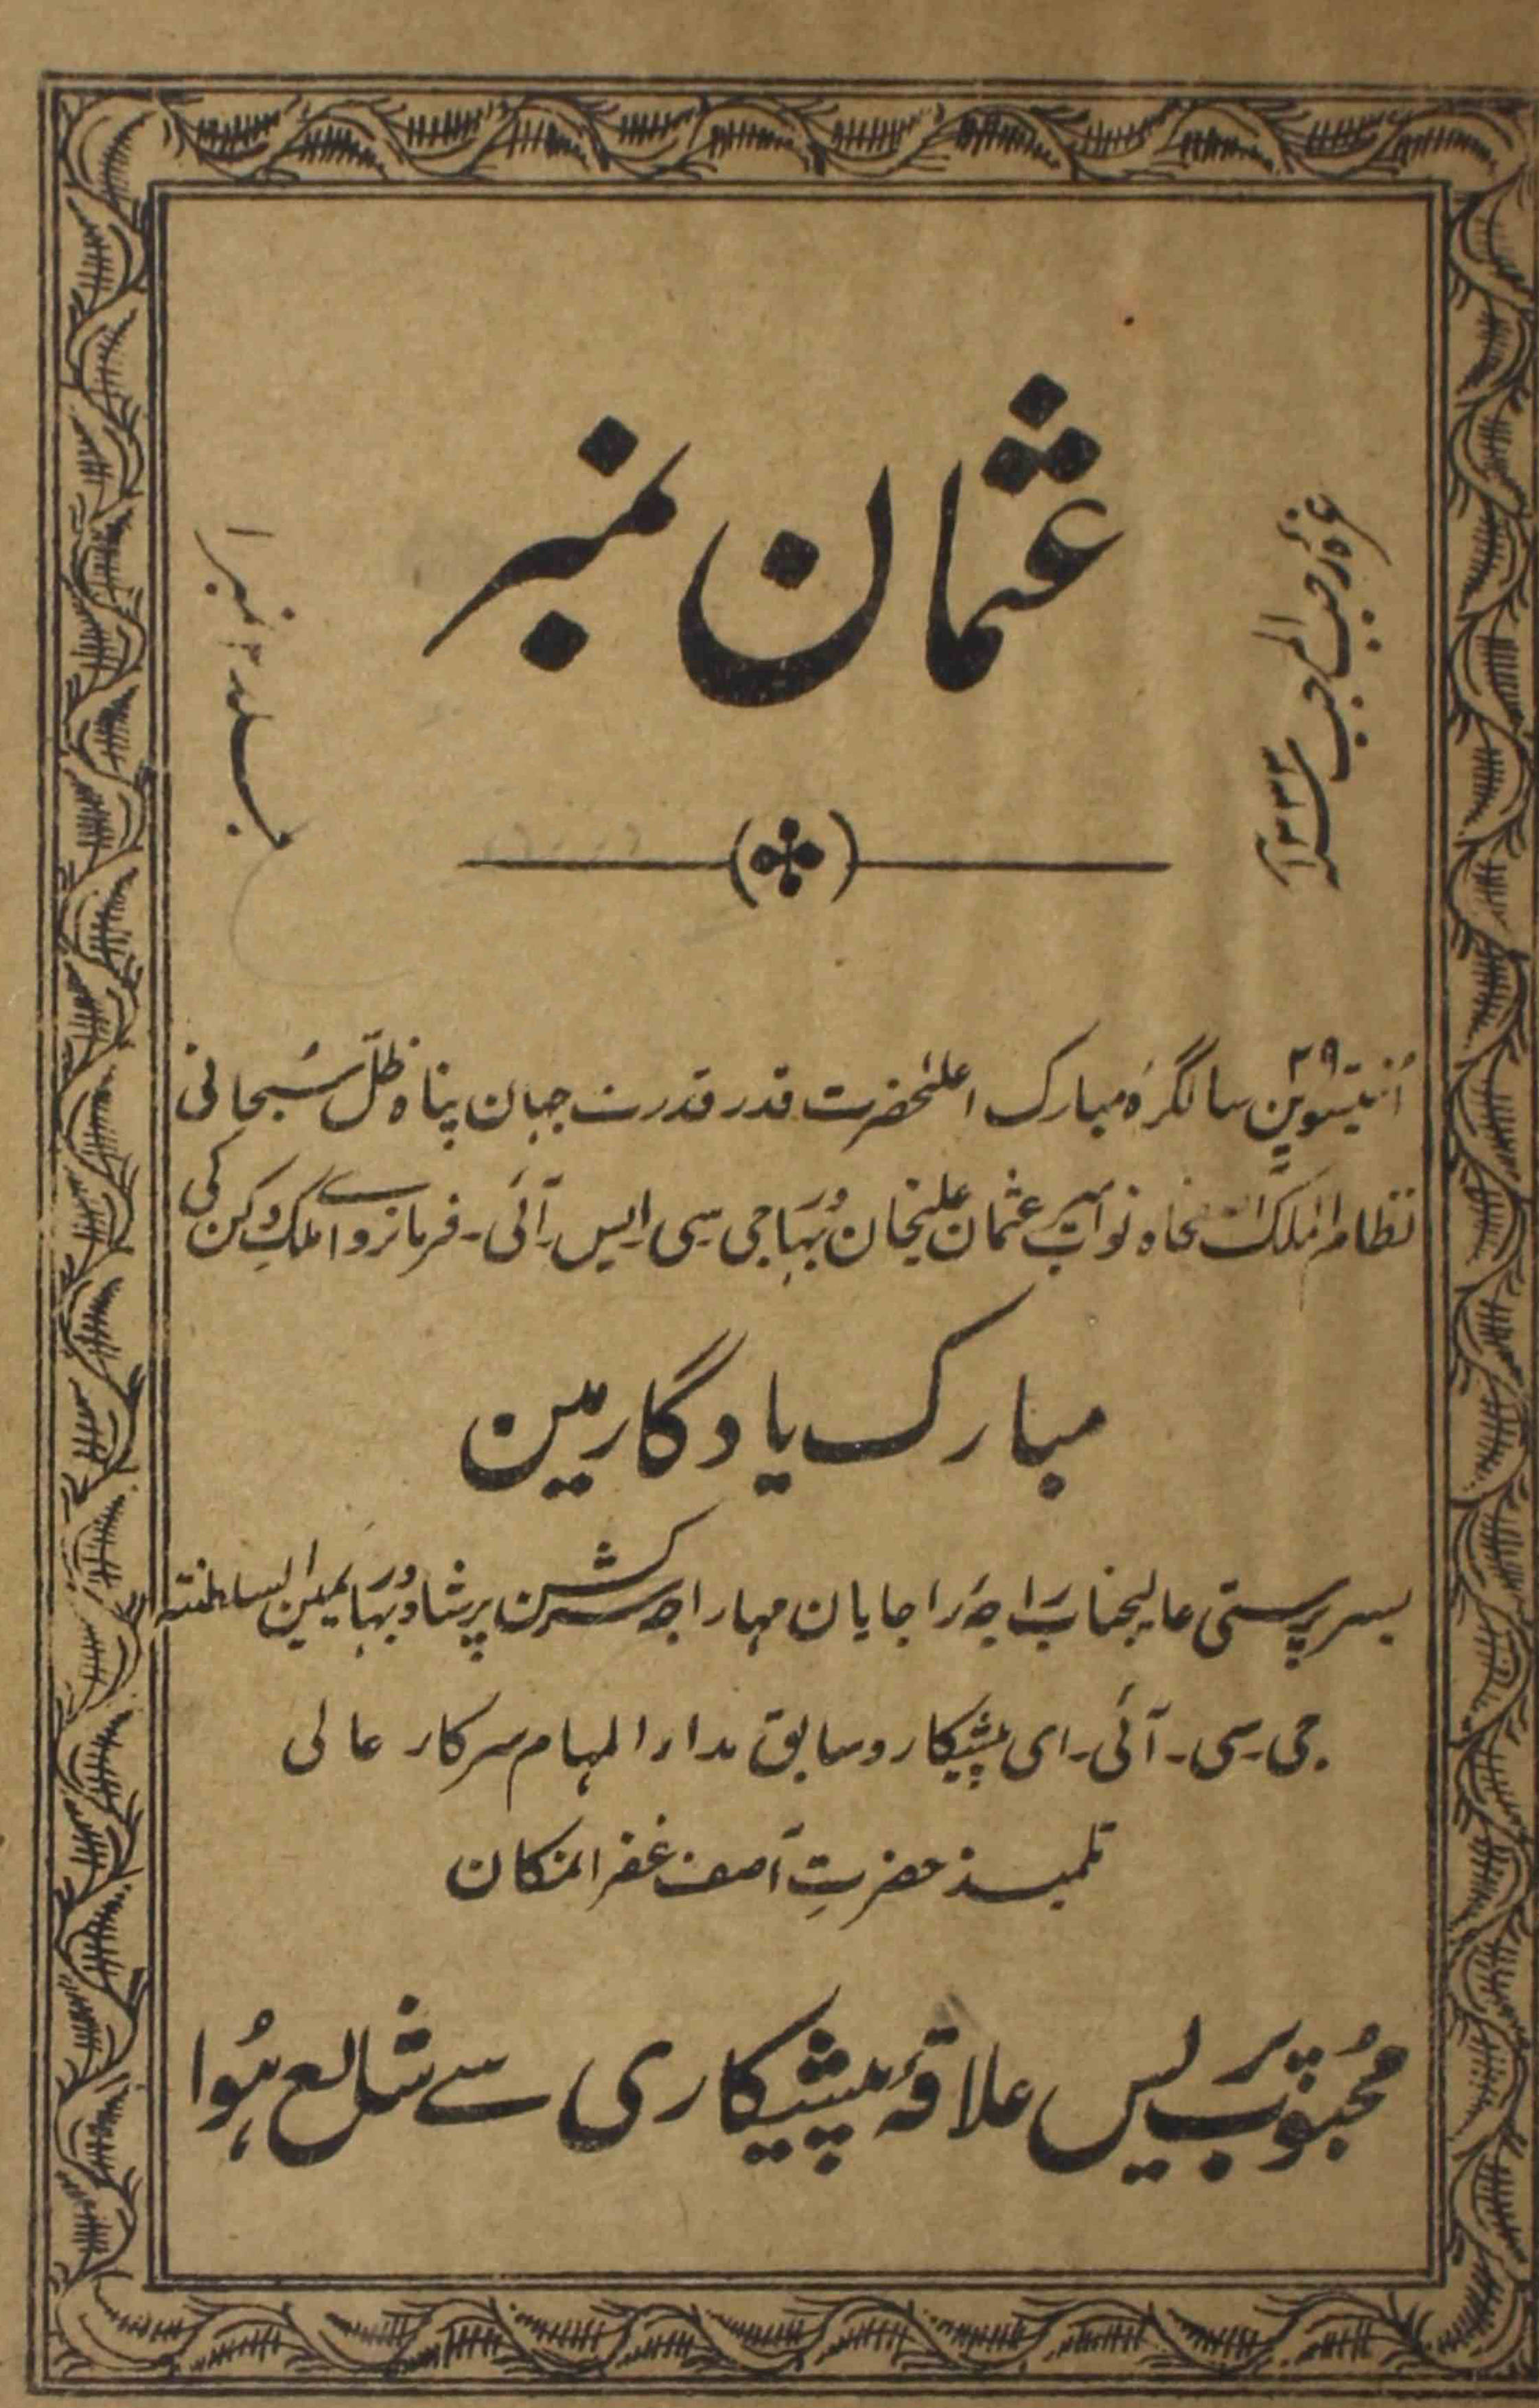 عثمان نمبر
غرۂ رجب المرجب سنہ ۱۳۳۳
جلد ۳ نمبر ۱
اُنتیسوین ۲۹ سالگرہ مبارک اعلیٰحضرت قدر قدرت جہان پناہ ظلّ سُبحانی
نظام الملک آصفجاہ نواب میر عثمان علیخان بہادر جی سی ایس آئی۔ فرمانروائے ملکِ دکن کی
مبارک یادگار مین
بسر پرستی عالیجناب راجۂ راجایان مہاراجہ سرکشن پرشاد بہادر یمین السلطنتہ
جی۔ سی۔ آئی۔ ای پیشکار و سابق مدار المہام سرکار عالی
تلمیذ حضرتِ آصف غفرالمکان
محبُوب پریس علاقۂ پیشکاری سے شالع ہُوا